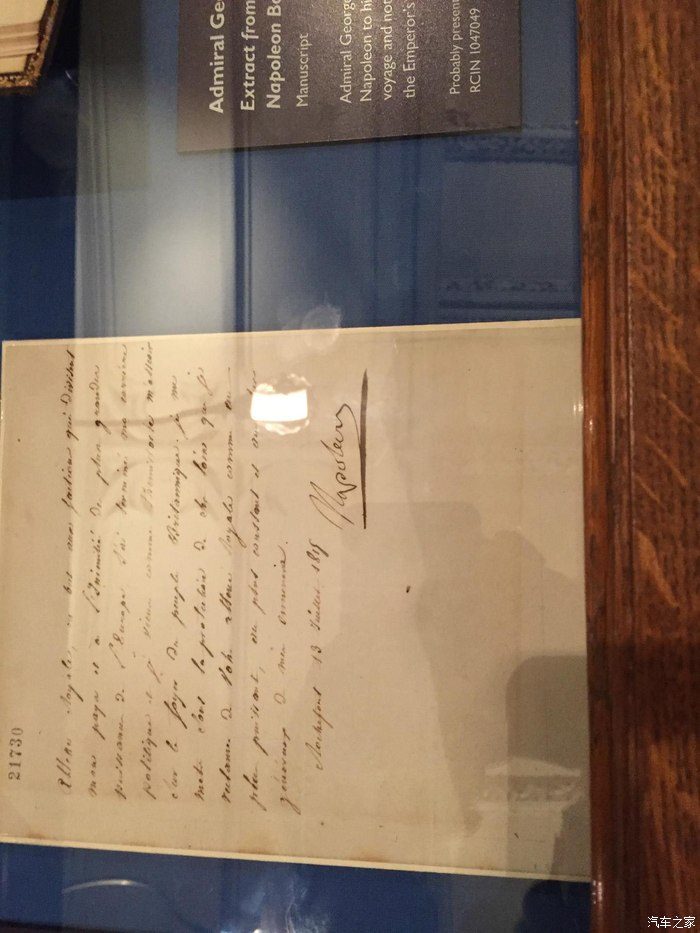 Admiral Ge
Extract from
Napoleon Bo
Manuscript
Admiral George
Napoleon to hi
voyage and not
the Emperor's
Probably present
RCIN 1047049
21730
Altesse Royale, en but aux factions qui divisent
mon pays et à l'Inimitié des plus grandes
puissances de l'Europe j'ai terminé ma carrière
politique et je viens comme Themistocle m'asseoir
sur le foyer du peuple Britannique. je me
mets sous la protection de ses loix que je
reclame de Votre altesse Royale comme du
plus puissant, du plus constant et du plus
généreux de mes ennemis.
Rochefort 13 Juillet 1815
Napoleon
汽车之家